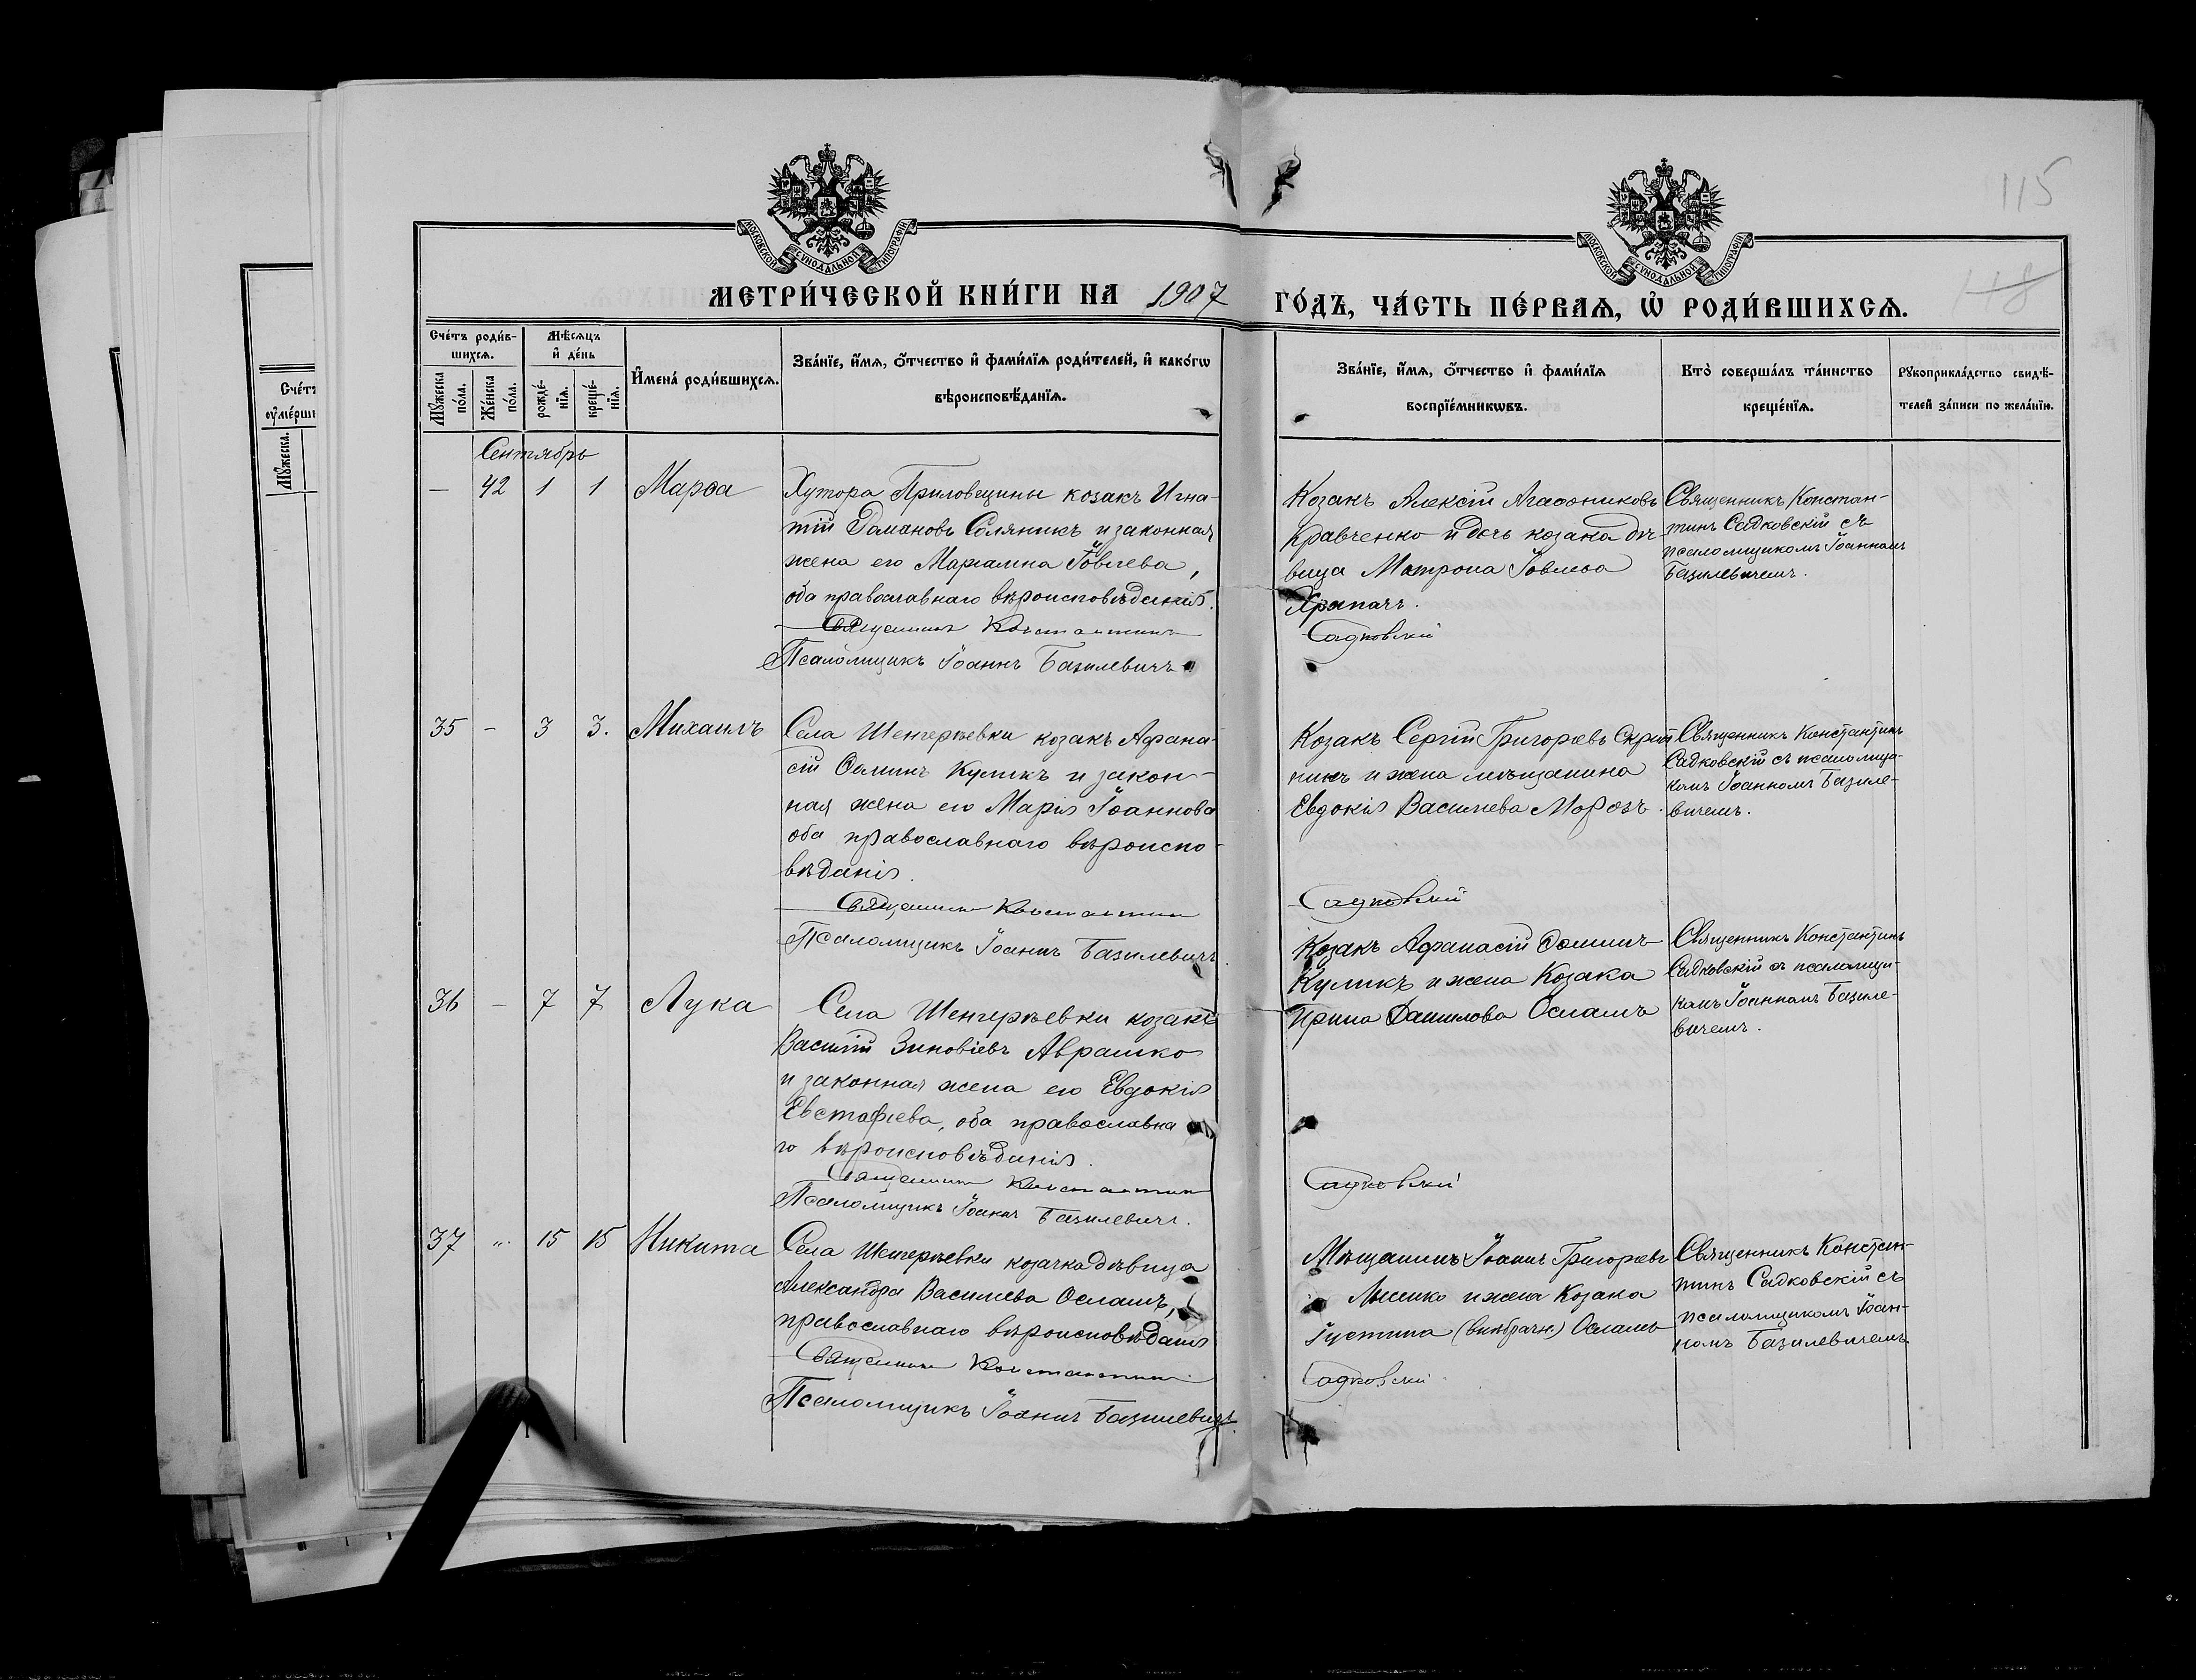 115
118
МОСКОВСКОЙ СѴНОДАЛЬНОЙ ТИПОГРАФІИ
МОСКОВСКОЙ СѴНОДАЛЬНОЙ ТИПОГРАФІИ
МЕТРИ́ЧЕСКОЙ КНИ́ГИ НА 1907 ГО́ДЪ, ЧА́СТЬ ПЕ́РВАѦ, Ѡ҆ РОДИ́ВШИХСѦ.
Счéтъ роди́в-
шихсѧ.
Мꙋжеска по́ла.
Же́нска по́ла.
Мѣ́сѧцъ
и҆ де́нь
рожде́-
нїѧ.
креще́-
нїѧ.
И҆мена̀ роди́вшихсѧ.
Зва́нїе, и҆́мѧ, ѻ҆́тчество и҆ фами́лїѧ роди́телей, и҆ како́гѡ
вѣроисповѣ́данїѧ.
Зва́нїе, и҆́мѧ, ѻ҆́тчество и҆ фами́лїѧ
воспрїе́мникѡвъ.
Кто̀ соверша́лъ та́инство
креще́нїѧ.
Рꙋкоприкла́дство свидѣ́-
телей за́писи по жела́нїю.
Счéтъ
Мꙋжеска.
Сентябрь
— 42 1 1 Марѳа
Хутора Приловщины козакъ Игна-
тій Романовъ Соляникъ и законная
жена его Маріамна Іовлева,
оба православнаго вѣроисповѣданія.
Священникъ Константинъ
Псаломщикъ Іоаннъ Базилевичъ
Козакъ Алексій Агаѳониковъ
Кравченко и дочь козака дѣ-
вица Матрона Іовлева
Храпачъ.
Садковскій
Священникъ Констан-
тинъ Садковскій съ
псаломщикомъ Іоанномъ
Базилевичемъ.
35 — 3 3. Михаилъ
Села Шенгерѣевки козакъ Афана-
сій Ѳоминъ Куликъ и закон-
ная жена его Марія Іоаннова
оба православнаго вѣроиспо-
вѣданія.
Священникъ Константинъ
Псаломщикъ Іоаннъ Базилевичъ
Козакъ Сергій Григорьевъ
никъ и жена мѣщанина
Евдокія Васильева Морозъ.
Садковскій
Священникъ Константинъ
Садковскій съ псаломщи-
комъ Іоанномъ Базиле-
вичемъ.
36 — 7 7 Лука
Села Шенгерѣевки козакъ
Василій Зиновіевъ Аврамко
и законная жена его Евдокія
Евстафіева, оба православна
го вѣроисповѣданія.
Священникъ Константинъ
Псаломщикъ Іоаннъ Базилевичъ.
Козакъ Афанасій Ѳоминъ
Куликъ и жена Козака
Ирина Данилова Осламъ
Садковскій
Священникъ Константинъ
Садковскій съ псаломщи-
комъ Іоанномъ Базиле-
вичемъ.
37 „ 15 15 Никита
Села Шенгерѣевки козачка дѣвица
Александра Васильева Осламъ,
православнаго вѣроисповѣданія
Священникъ Константинъ
Псаломщикъ Іоаннъ Базилевичъ.
Мѣщанинъ Іоаннъ Григорьевъ
Лысенко и жена Козака
Іустина (внѣбрачн.) Осламъ
Садковскій
Священникъ Констан-
тинъ Садковскій съ
псаломщикомъ Іоан-
номъ Базилевичемъ